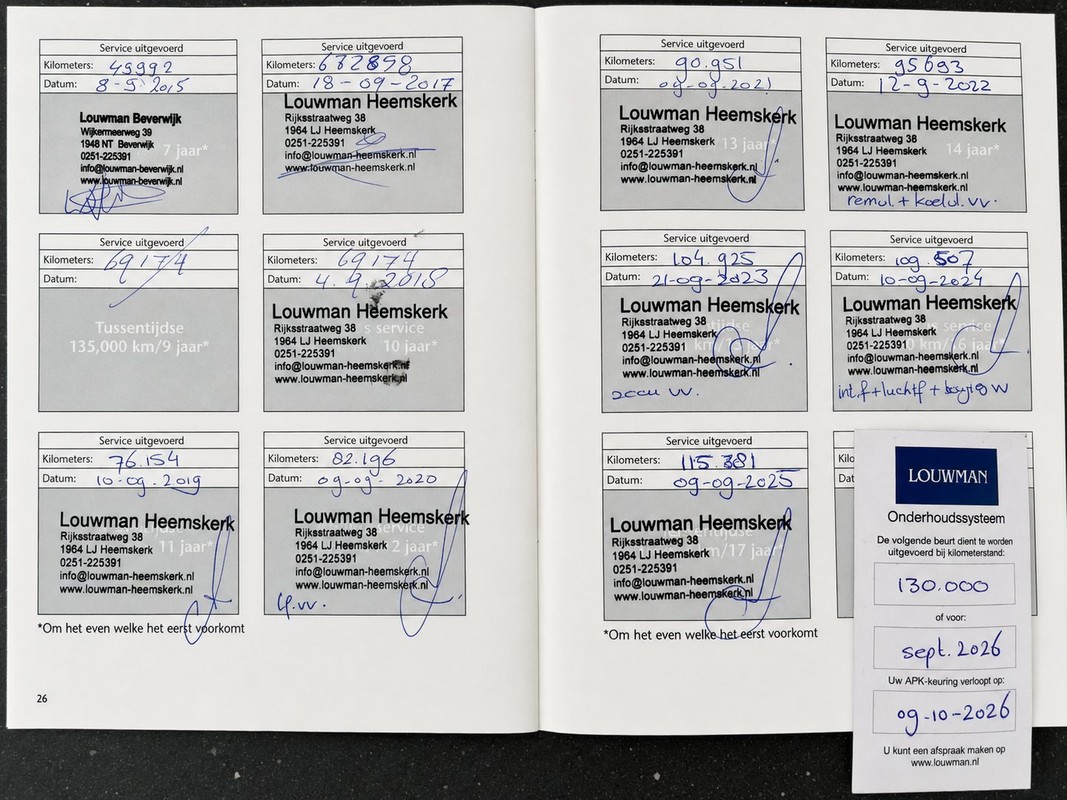 Service uitgevoerd
Kilometers: 49992
Datum: 8-5-2015
Louwman Beverwijk
Wijkermeerweg 39
1948 NT Beverwijk
0251-225391
7 jaar*
info@louwman-beverwijk.nl
www.louwman-beverwijk.nl
Service uitgevoerd
Kilometers:
Datum: 18-09-2017
Louwman Heemskerk
Rijksstraatweg 38
1964 LJ Heemskerk
0251-225391
info@louwman-heemskerk.nl
www.louwman-heemskerk.nl
Service uitgevoerd
Kilometers: 69174
Datum:
Tussentijdse
135,000 km/9 jaar*
Service uitgevoerd
Kilometers: 69174
Datum: 4.9.2018
Louwman Heemskerk
Rijksstraatweg 38
s service
1964 LJ Heemskerk
0251-225391
10 jaar*
info@louwman-heemskerk.nl
www.louwman-heemskerk.nl
Service uitgevoerd
Kilometers: 76.154
Datum: 10-09-2019
Louwman Heemskerk
Rijksstraatweg 38
1964 LJ Heemskerk
0251-225391
11 jaar*
info@louwman-heemskerk.nl
www.louwman-heemskerk.nl
Service uitgevoerd
Kilometers: 82.196
Datum: 09-09-2020
Louwman Heemskerk
Rijksstraatweg 38
service
1964 LJ Heemskerk
0251-225391
2 jaar*
info@louwman-heemskerk.nl
www.louwman-heemskerk.nl
*Om het even welke het eerst voorkomt
26
Service uitgevoerd
Kilometers: 90.951
Datum: 09-09-2021
Louwman Heemskerk
Rijksstraatweg 38
1964 LJ Heemskerk
13 jaar*
0251-225391
info@louwman-heemskerk.nl
www.louwman-heemskerk.nl
Service uitgevoerd
Kilometers: 95693
Datum: 12-9-2022
Louwman Heemskerk
Rijksstraatweg 38
1964 LJ Heemskerk
14 jaar*
0251-225391
info@louwman-heemskerk.nl
www.louwman-heemskerk.nl
remvl. + koelvl. vv.
Service uitgevoerd
Kilometers: 104.925
Datum: 21-09-2023
Louwman Heemskerk
Rijksstraatweg 38
1964 LJ Heemskerk
0251-225391
info@louwman-heemskerk.nl
www.louwman-heemskerk.nl
accu vv.
Service uitgevoerd
Kilometers: 109.507
Datum: 10-09-2024
Louwman Heemskerk
Rijksstraatweg 38
service
1964 LJ Heemskerk
0251-225391
info@louwman-heemskerk.nl
www.louwman-heemskerk.nl
int.f+luchtf +
Service uitgevoerd
Kilometers: 115.381
Datum: 09-09-2025
Louwman Heemskerk
Rijksstraatweg 38
1964 LJ Heemskerk
m/17 jaar*
0251-225391
info@louwman-heemskerk.nl
www.louwman-heemskerk.nl
*Om het even welke het eerst voorkomt
LOUWMAN
Onderhoudssysteem
De volgende beurt dient te worden
uitgevoerd bij kilometerstand:
130.000
of voor:
sept. 2026
Uw APK-keuring verloopt op:
09-10-2026
U kunt een afspraak maken op
www.louwman.nl